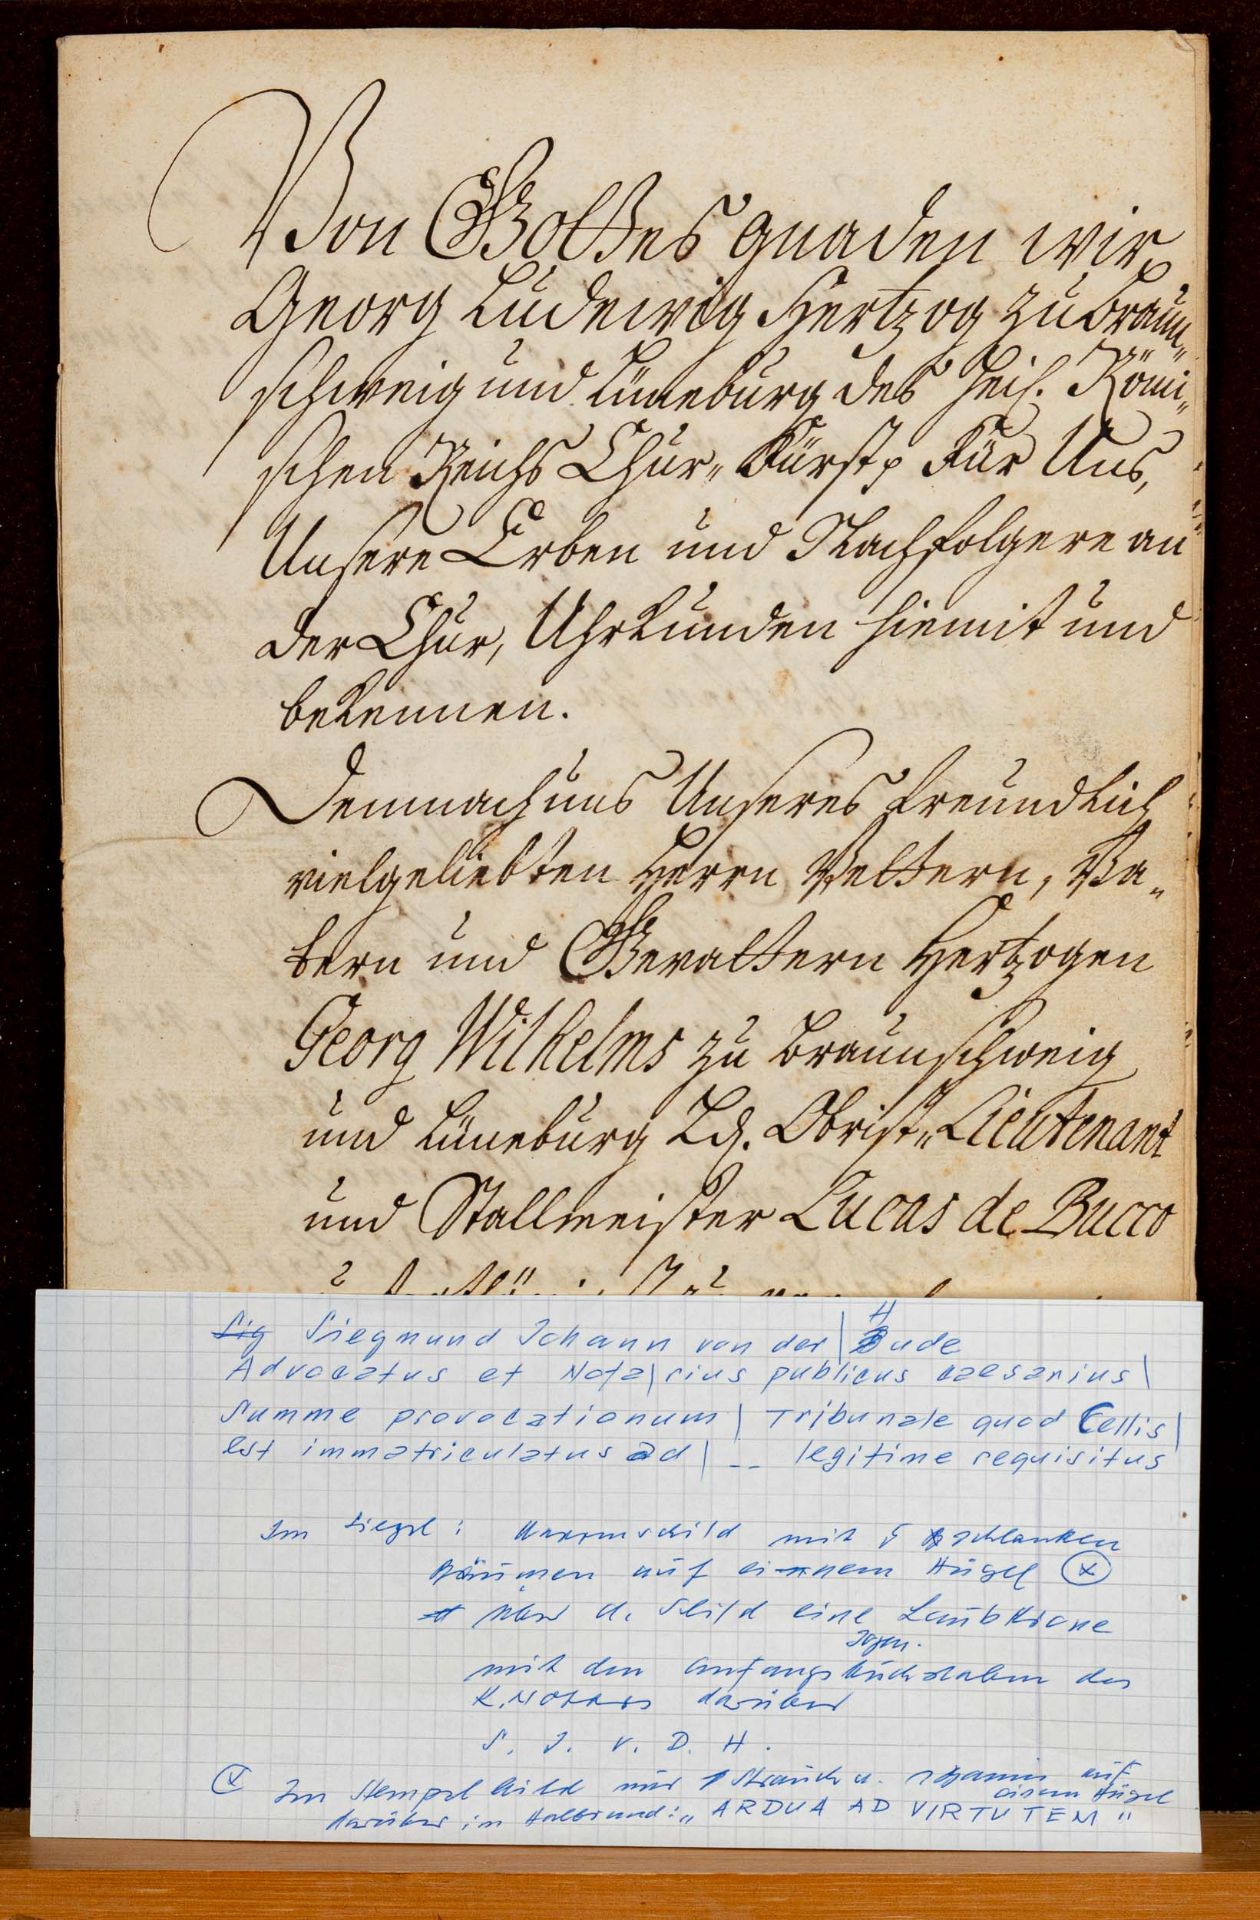 Von Gottes gnaden wir
Georg Ludewig Hertzog zu Braun„
schweig und Lüneburg des Heil. Römi„
schen Reichs Chur„ Fürst p Für Uns,
Unsere Erben und Nachfolgere an
der Chur, Uhrkunden hiemit und
bekennen.
Demnach uns Unseres freundlich
vielgeliebten Herrn Vettern, Va„
tern und Gevattern Hertzogen
Georg Wilhelms zu Braunschweig
und Lüneburg Ld. Obrist„ Lieutenant
und Stallmeister Lucas de Bucco
Siegmund Johann von der | Hude
Advocatus et Nota|rius publicus caesarius|
Summe provocationum | Tribunale quod Cellis|
est immatriculatus ad | -- legitime requisitus
Im Siegel: Wappenschild mit 5 schlanken
Bäumen auf einem Hügel (x)
über d. Schild eine Laubkrone
mit den Anfangsbuchstaben des
K. Notars darüber
S. J. V. D. H.
(x) Im Stempelbild nur 1 Strauch u. auf
einem Hügel
darüber im Halbrund: „ARDUA AD VIRTUTEM"